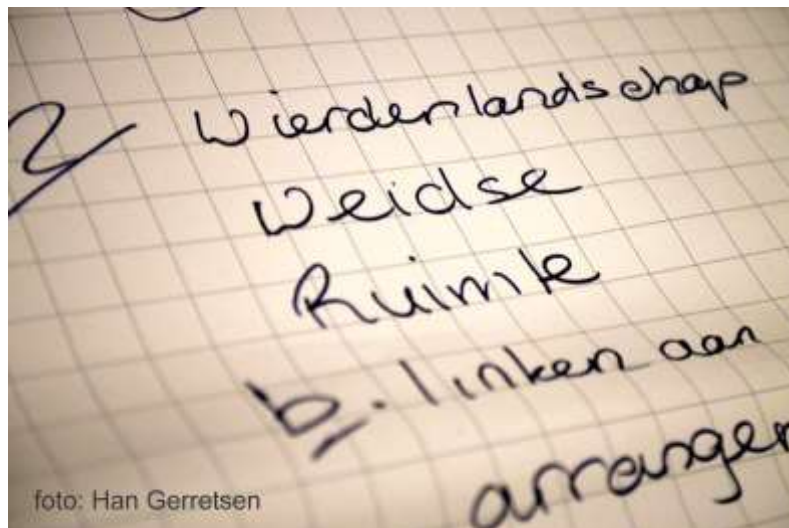 2/ Wierdenlandschap
Weidse
Ruimte
b. linken aan
arranger
foto: Han Gerretsen